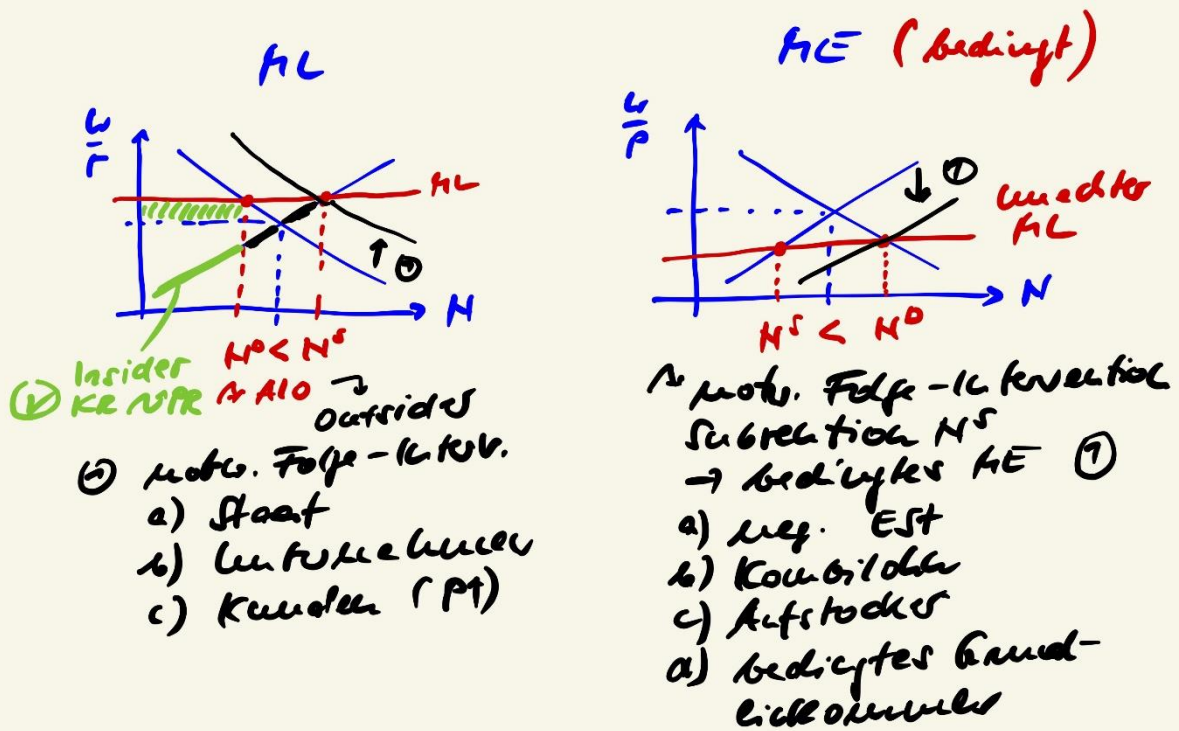 ML
W/P
ML
N
N^D < N^S
Insider
KR
ALO
Outsider
motw. Folge-Interv.
a) Staat
b) Unternehmer
c) Kunden (P↑)
ME (bedingt)
W/P
①
unechter
ML
N
N^S < N^D
motw. Folge-Intervention
Subvention N^S
→ bedingtes ME ①
a) neg. ESt
b) Kombilohn
c) Aufstocker
d) bedingtes Grund-
einkommen